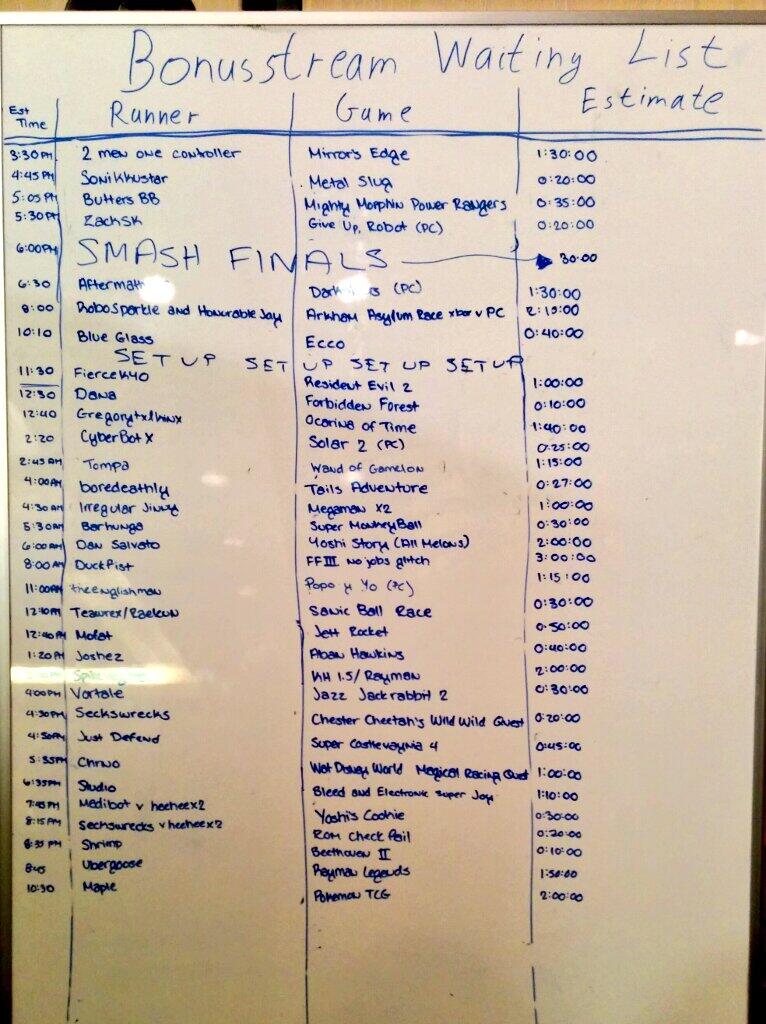 Bonusstream Waiting List
Est Time Runner Game Estimate
3:30PM 2 men one controller Mirror's Edge 1:30:00
4:45PM Sonikkustar Metal Slug 0:20:00
5:05PM Butters BB Mighty Morphin Power Rangers 0:35:00
5:30PM ZachSK Give Up, Robot (PC) 0:20:00
6:00PM SMASH FINALS 30:00
6:30 (PC) 1:30:00
8:00 RoboSparkle and Honorable Jay Arkham Asylum Race xbox v PC 2:15:00
10:10 Blue Glass Ecco 0:40:00
SET UP SET UP SET UP SETUP
11:30 Fiercek40 Resident Evil 2 1:00:00
12:30 Dana Forbidden Forest 0:10:00
12:40 Ocarina of Time 1:40:00
2:20 CyberBotX Solar 2 (PC) 0:25:00
2:45AM Tompa Wand of Gamelon 1:15:00
4:00AM boredeathly Tails Adventure 0:27:00
4:30AM Irregular Jinny Megaman X2 1:00:00
5:30AM Barhunga Super MonkeyBall 0:30:00
6:00AM Dan Salvato Yoshi Story (All Melons) 2:00:00
8:00AM DuckFist FFIII No jobs glitch 3:00:00
11:00AM theenglishman Papo y Yo (PC) 1:15:00
12:10PM Teawrex/Raelcun Sonic Ball Race 0:30:00
12:40PM Mofat Jett Rocket 0:50:00
1:20PM Joshez Aban Hawkins 0:40:00
KH 1.5/Rayman 2:00:00
4:00PM Vortale Jazz Jackrabbit 2 0:30:00
4:30PM Seckswrecks Chester Cheetah's Wild Wild Quest 0:20:00
4:50PM Just Defend Super Castlevaynia 4 0:45:00
5:35PM Chrno Walt Disney World Magical Racing Quest 1:00:00
6:35PM Studio Bleed and Electronic Super Joy 1:10:00
7:45PM Medibot v heehee x2 Yoshi's Cookie 0:30:00
8:15PM Seckswrecks v heehee x2 ROM Check Fail 0:20:00
8:35PM Shrimp Beethoven II 0:10:00
8:45 Ubergoose Rayman Legends 1:50:00
10:30 Maple Pokemon TCG 2:00:00